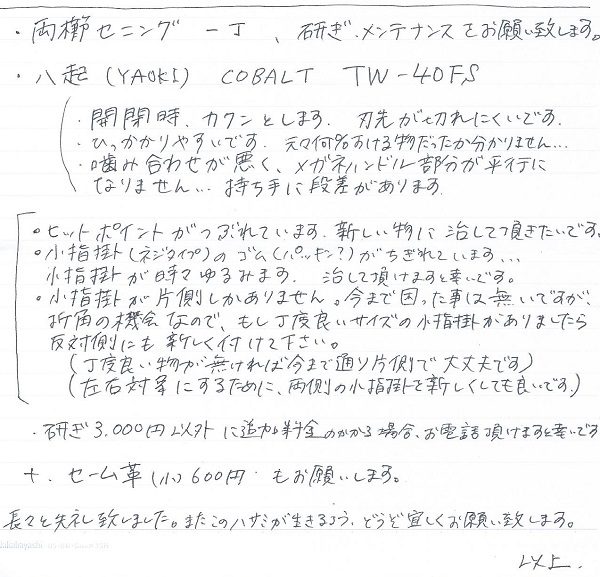 ・両櫛セニング 一丁 、研ぎ.メンテナンスをお願い致します。
・八起 (YAOKI) COBALT TW-40FS
・開閉時、カクンとします. 刃先が切れにくいです.
・ひっかかりやすいです. 元々何%すける物だったか分かりません…
・噛み合わせが悪く、メガネハンドル部分が平行に
なりません… 持ち手に段差があります.
・ヒットポイントがつぶれています. 新しい物に治して頂きたいです。
・小指掛ト(ネジタイプ)のゴム(パッキン?)がちぎれています...
小指掛トが時々ゆるみます. 治して頂けますと幸いです。
・小指掛トが片側しかありません。今まで困った事は無いですが、
折角の機会なので、もし丁度良いサイズの小指掛がありましたら
反対側にも新しく付けて下さい。
(丁度良い物が無ければ今まで通り片側で大丈夫です)
(左右対称にするために、両側の小指掛トを新しくしても良いです.)
・研ぎ3.000円以外に追加料金のかかる場合、お電話頂けますと幸いです
+. セーム革(小)600円 もお願いします。
長々と失礼致しました。またこのハサミが生きるよう、どうぞ宜しくお願い致します。
以上.